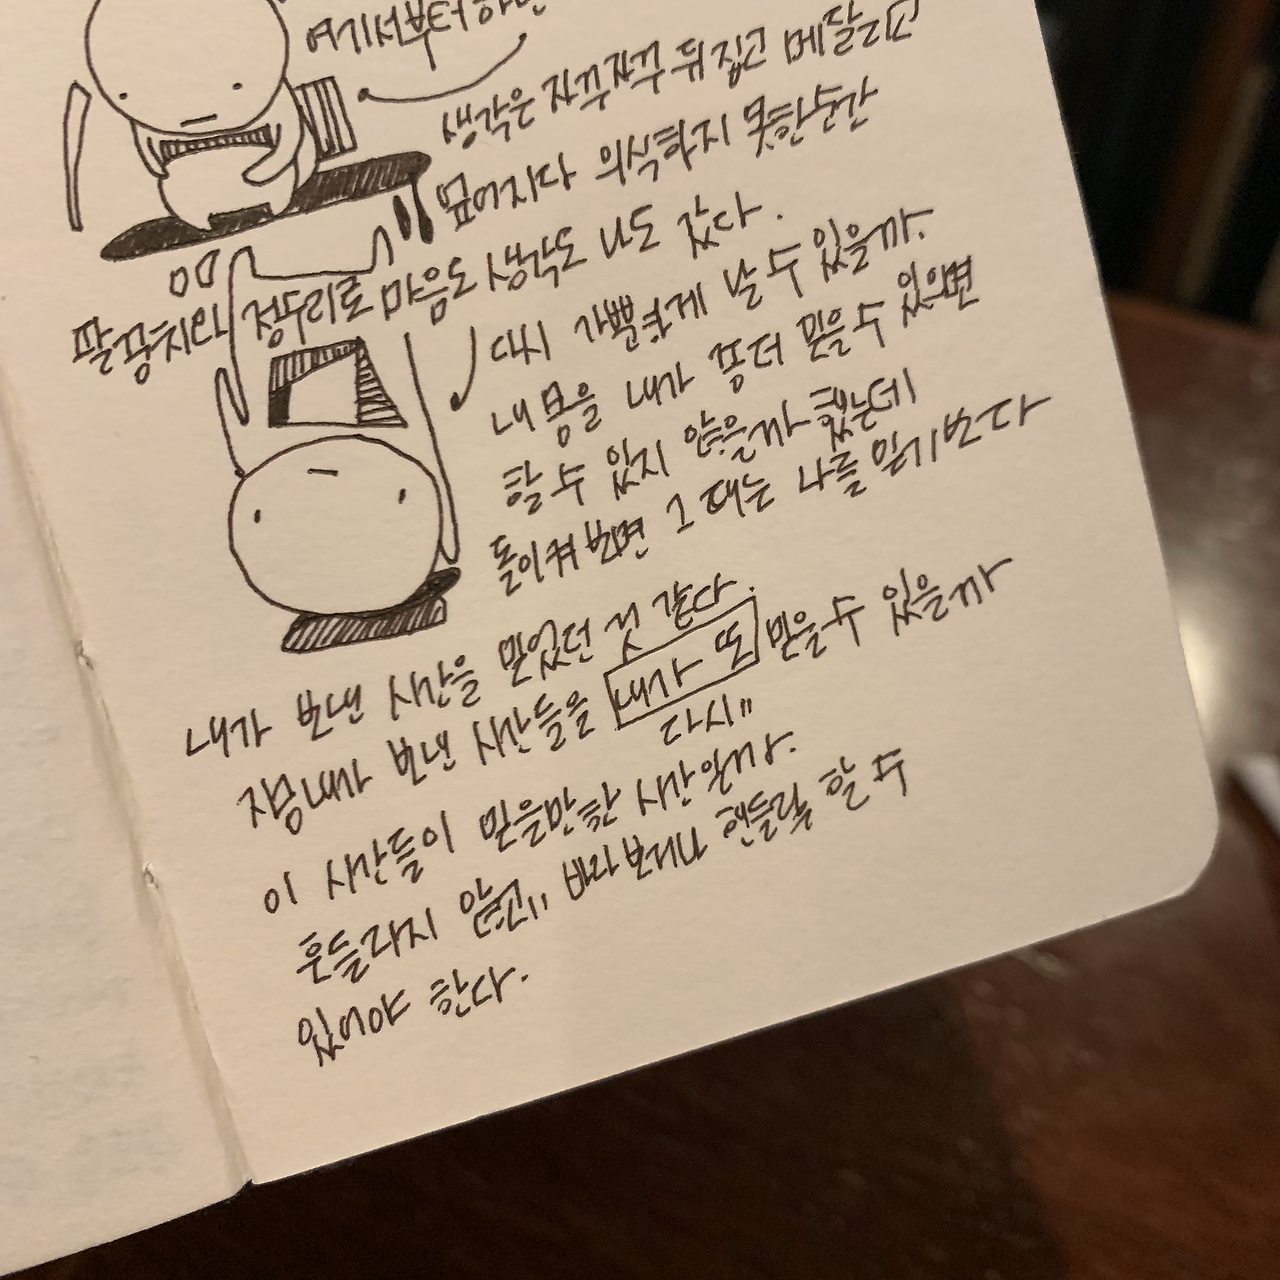 여기서부터 하면
생각은 자꾸자꾸 뒤집고 메달리고
묶어지다 의식하지 못한 순간
팔꿈치랑 정수리로 마음도 생각도 나도 갔다.
다시 가뿐하게 날 수 있을까.
내 몸을 내가 좀더 믿을 수 있으면
할 수 있지 않을까 했는데
돌이켜보면 그 때는 나를 믿기보다
내가 보낸 시간을 믿었던 것 같다.
지금 내가 보낸 시간들을 내가 또 믿을 수 있을까
다시"
이 시간들이 믿을만한 시간인가.
흔들리지 않고" 바라보거나 핸들링 할 수
있어야 한다.